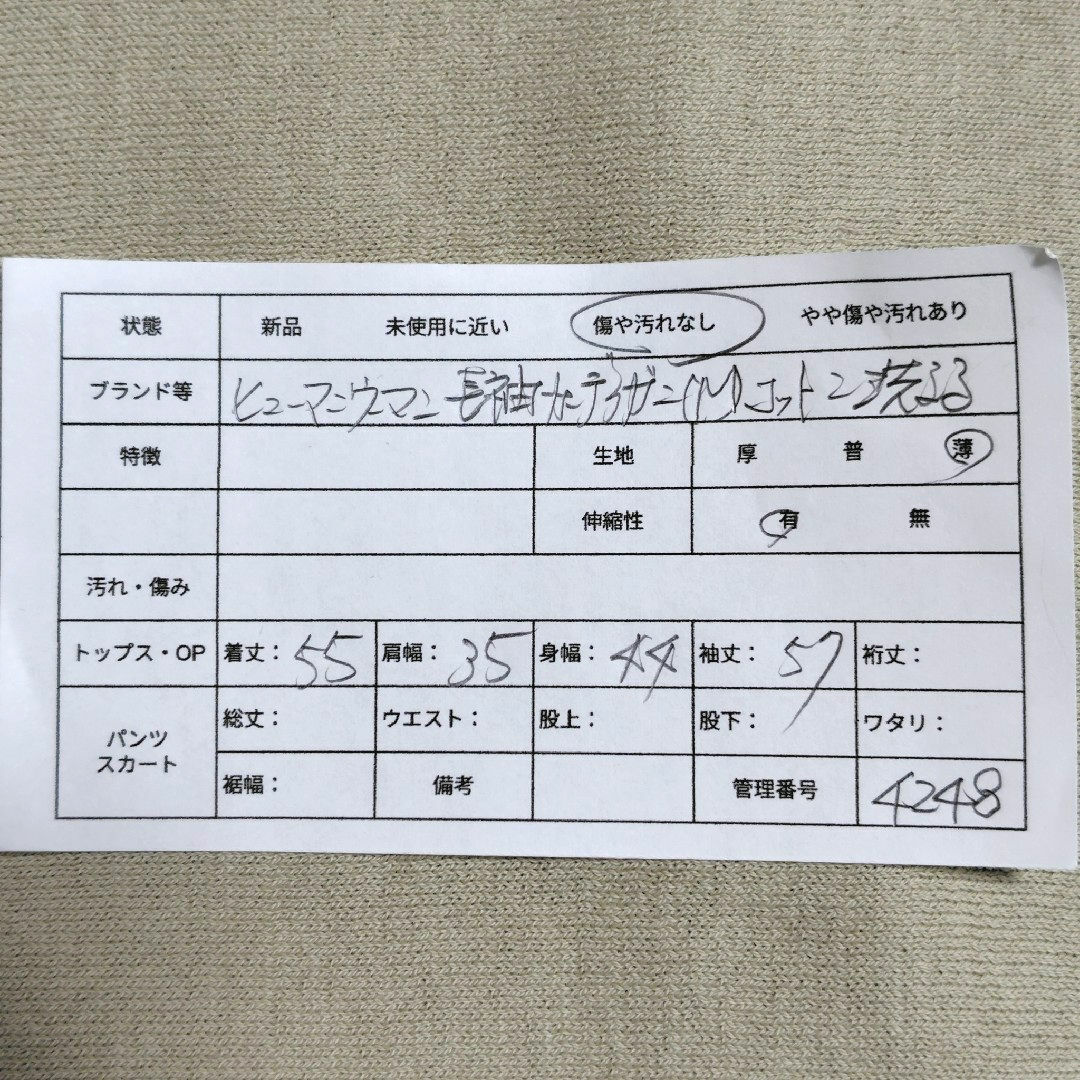 状態 新品 未使用に近い 傷や汚れなし やや傷や汚れあり
ブランド等 ヒューマンウーマン 長袖カーディガン(M)コットン 洗える
特徴 生地 厚 普 薄
伸縮性 有 無
汚れ・傷み
トップス・OP 着丈：55 肩幅：35 身幅：44 袖丈：57 裄丈：
パンツ 総丈： ウエスト： 股上： 股下： ワタリ：
スカート 裾幅： 備考 管理番号 4248